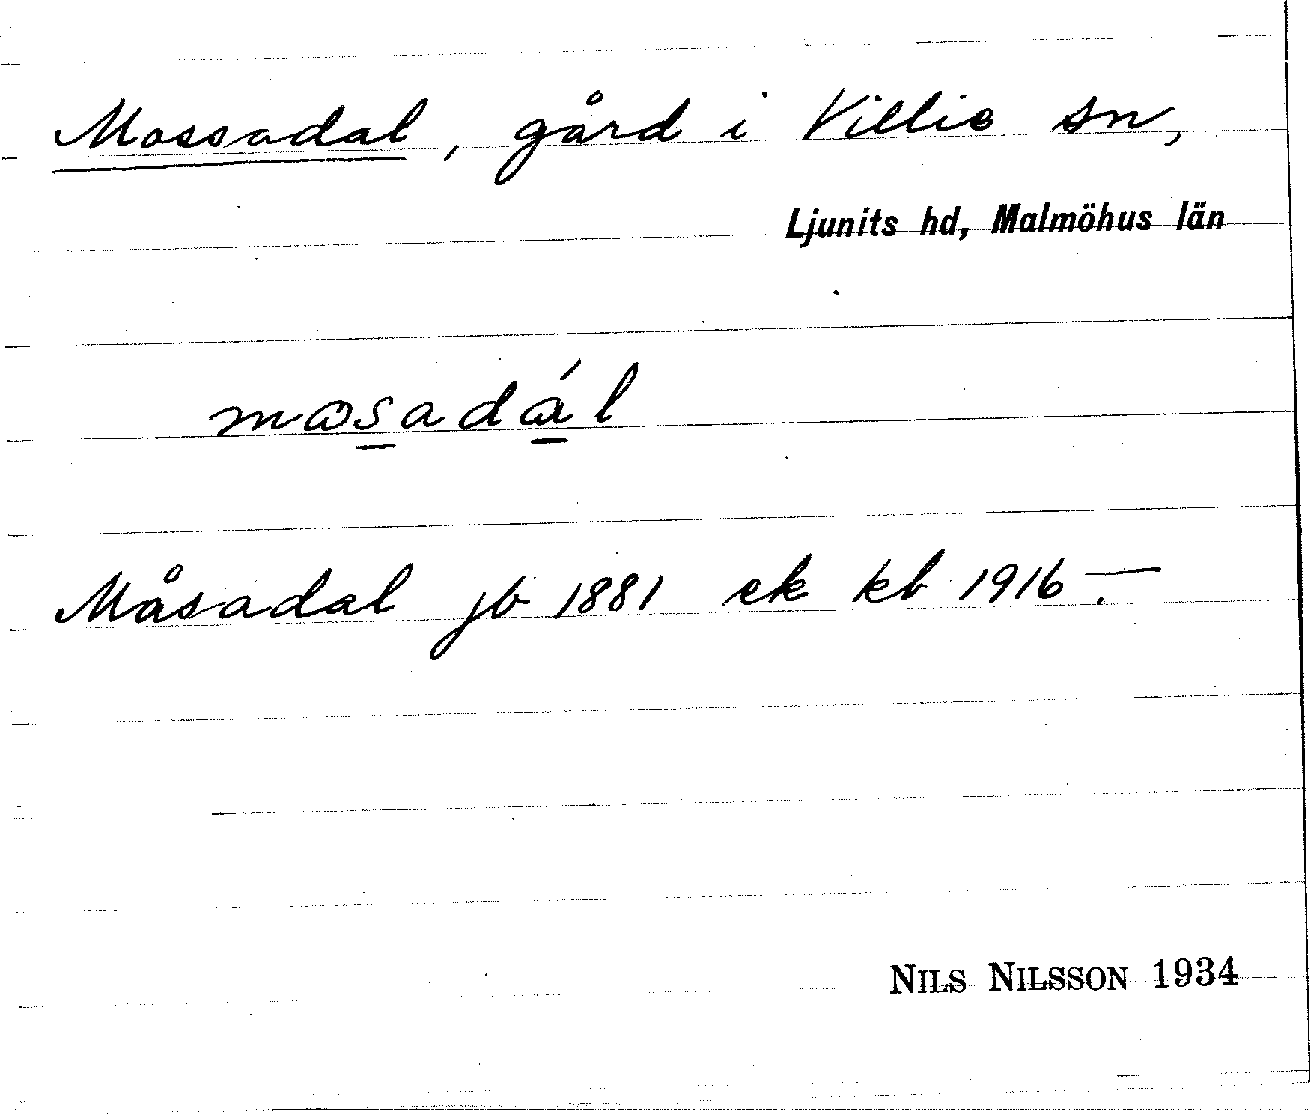 Mossadal, gård i Villie sn,
Ljunits hd, Malmöhus län
mɷsadál
Måsadal jb 1881 ek kb 1916 –.
NILS NILSSON 1934